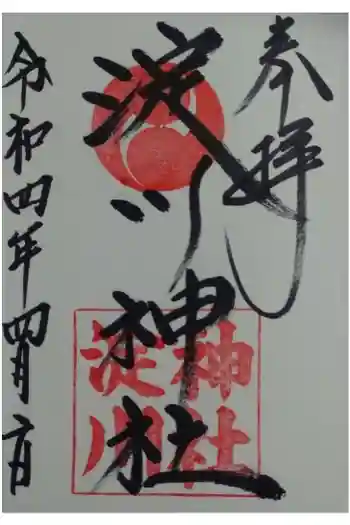 奉拝
淀川神社
神社
淀川
令和四年四月二日